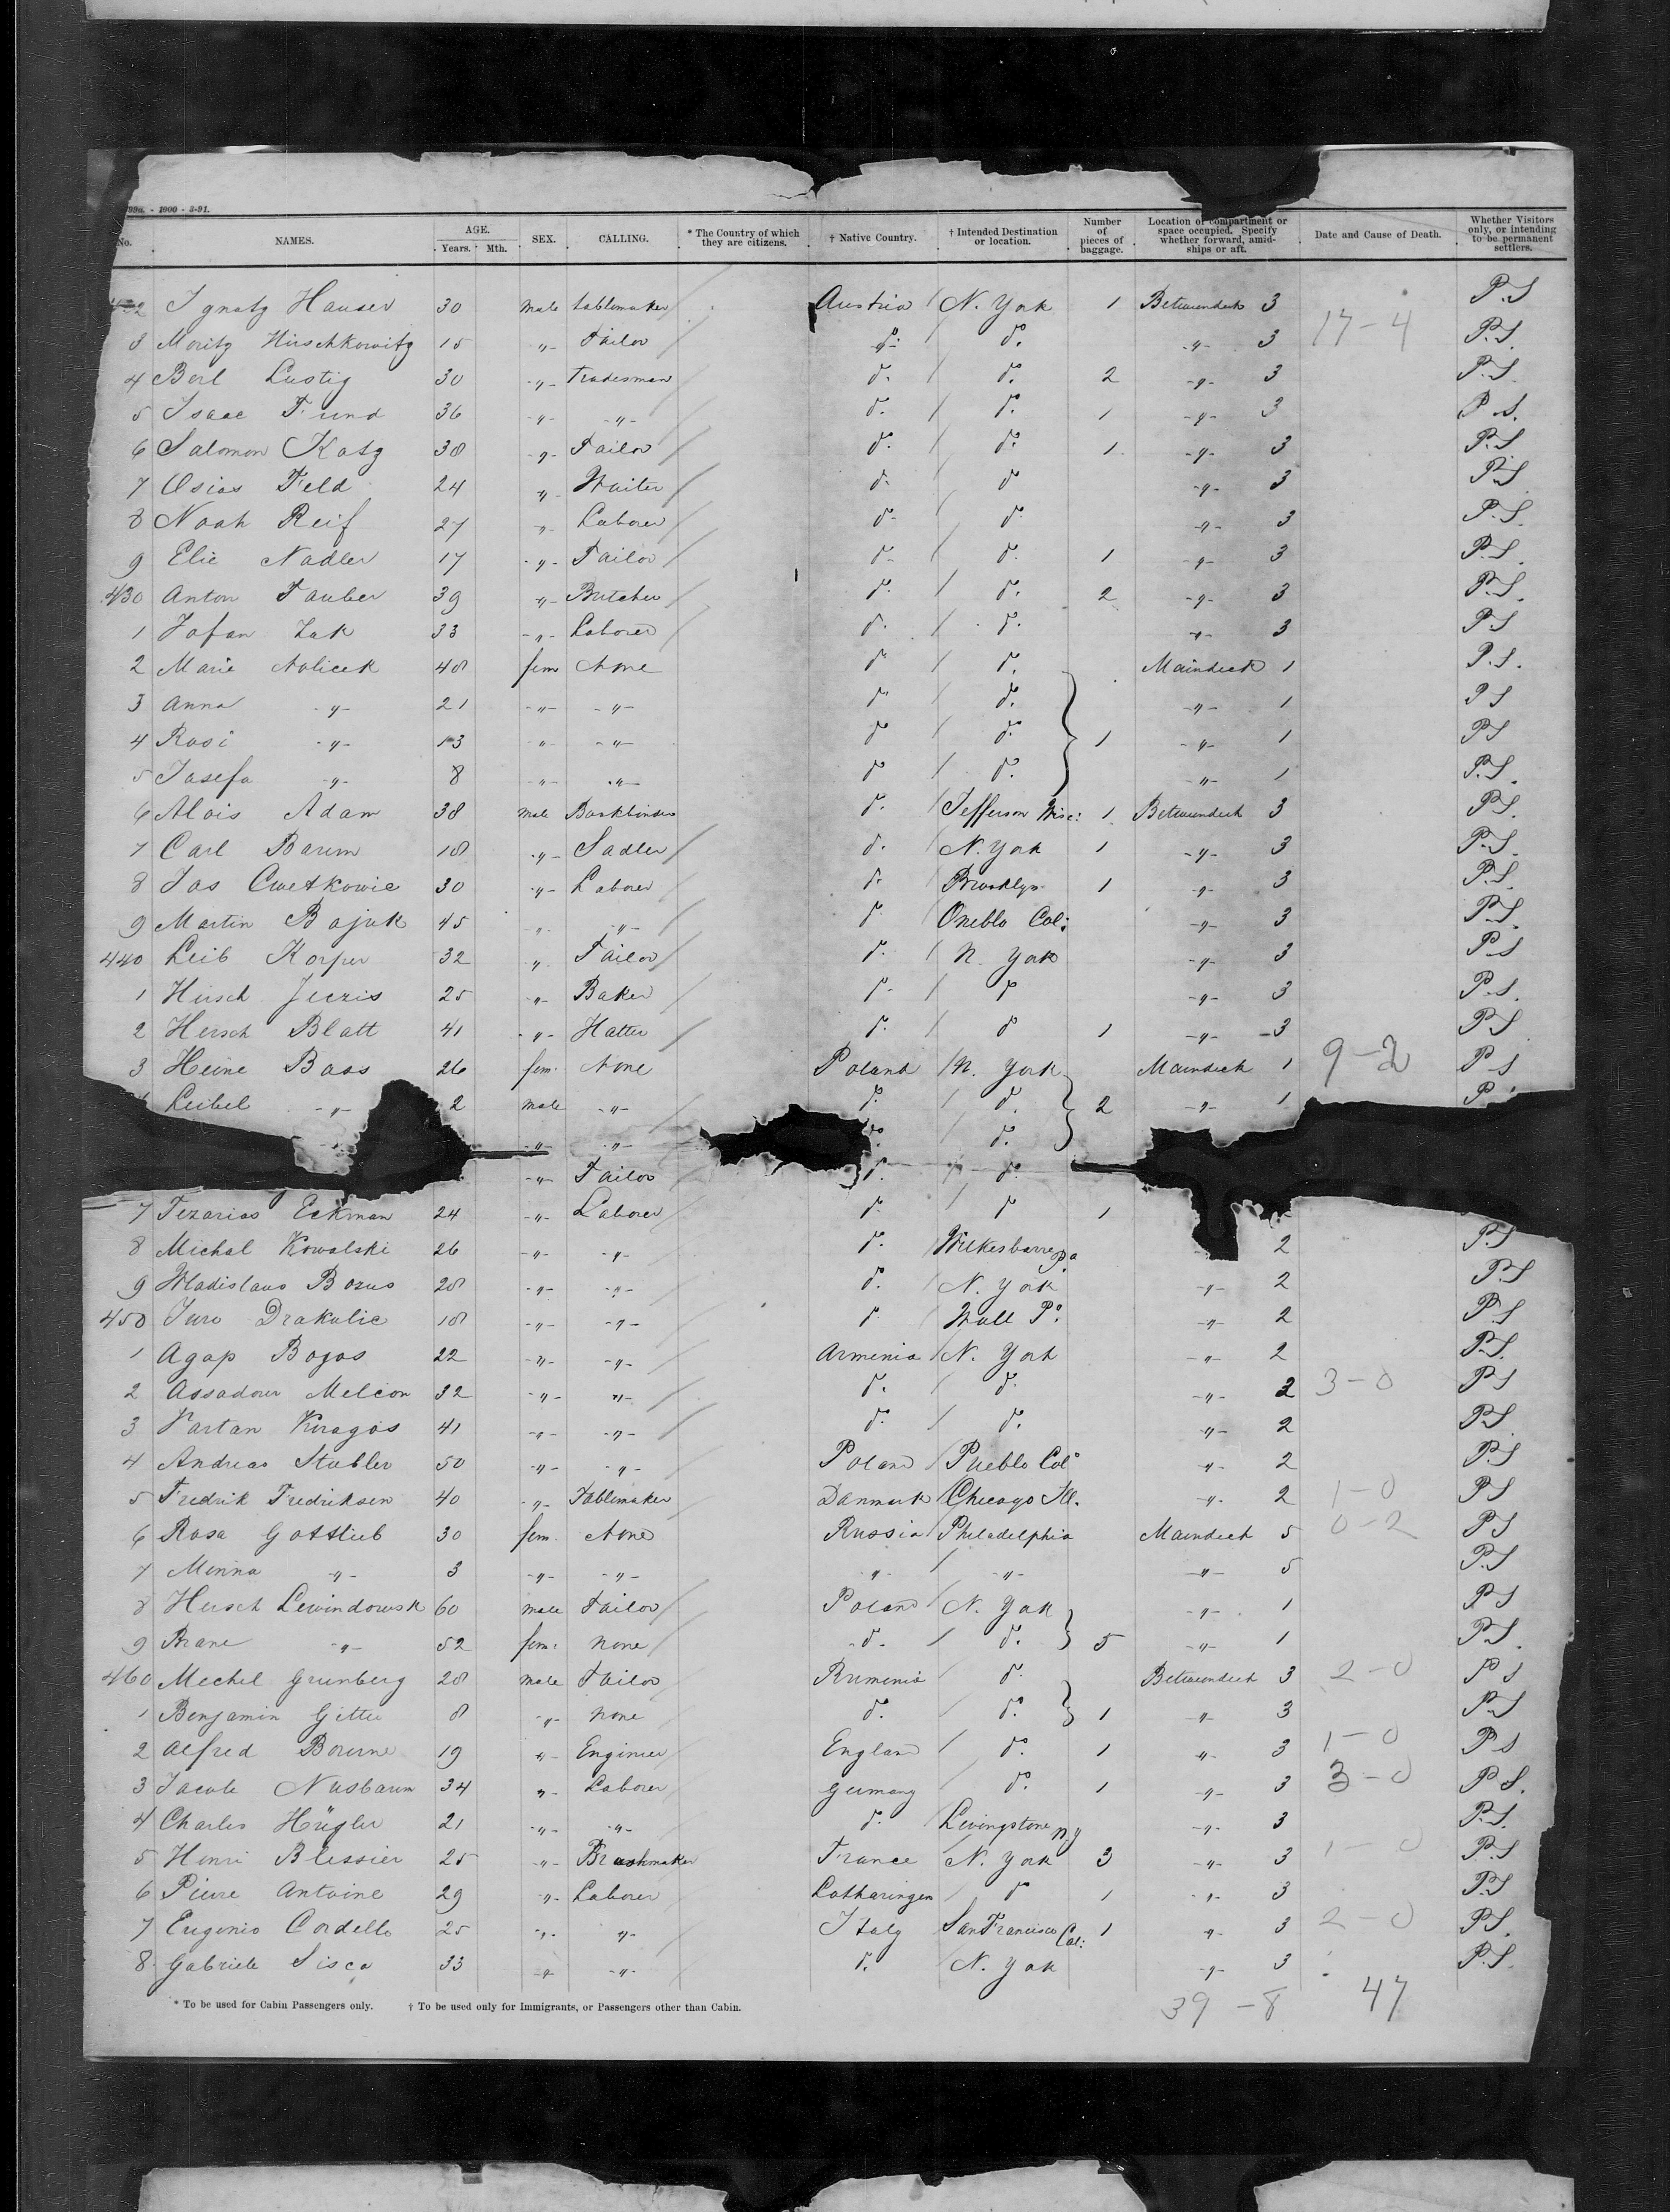 99a. - 1000 - 3-91.
No. NAMES. AGE. Years. Mth. SEX. CALLING. * The Country of which they are citizens. † Native Country. † Intended Destination or location. Number of pieces of baggage. Location of compartment or space occupied. Specify whether forward, amidships or aft. Date and Cause of Death. Whether Visitors only, or intending to be permanent settlers.
2 Ignatz Hauser 30 male tablemaker Austria N. York 1 Betweendeck 3 P.S
3 Moritz Hirschkowitz 15 -"- Tailor -"- d. -"- 3 17-4 P.S.
4 Berl Lustig 30 -"- Tradesman d. d. 2 -"- 3 P.S.
5 Isaac Fund 36 -"- -"- d. d. 1 -"- 3 P.S.
6 Salomon Katz 38 -"- Tailor d. d. 1 -"- 3 P.S
7 Osias Feld 24 -"- Waiter d. d -"- 3 P.S
8 Noah Reif 27 -"- Laborer d. d. -"- 3 P.S.
9 Elie Nadler 17 -"- Tailor d. d. 1 -"- 3 P.S.
430 Anton Tauber 39 -"- Butcher d. d. 2 -"- 3 P.S.
1 Jafan Zak 33 -"- Laborer d. d. -"- 3 P.S
2 Marie 48 fem None d d. Maindeck 1 P.S.
3 Anna -"- 21 -"- -"- d. d. -"- 1 P S
4 Rosi -"- 13 -"- -"- d d. 1 -"- 1 P S
5 Josefa -"- 8 -"- -"- d d. -"- 1 P.S.
6 Alois Adam 38 male Bookbinder d. Jefferson Wisc: 1 Betweendeck 3 P.S.
7 Carl Baum 18 -"- Sadler d. N. York 1 -"- 3 P.S.
8 Jos Cwetkowic 30 -"- Laborer d. Brooklyn 1 -"- 3 P.S.
9 Martin Bajuk 45 -"- -"- d Oneblo Col: -"- 3 P.S.
440 Leib Korper 32 -"- Tailor d. N. York -"- 3 P.S
1 Hirsch 25 -"- Baker d. d -"- 3 P.S.
2 Hersch Blatt 41 -"- Hatter d. d 1 -"- 3 P.S
3 Heine Bass 26 fem. None Poland N. York Maindeck 1 9-2 P S
Leibel -"- 2 male -"- d. d. 2 -"- 1 P
-"- -"- -"- d. d.
-"- Tailor d. d.
7 Eckman 24 -"- Laborer d. d 1
8 Michal Kowalski 26 -"- -"- d. Wilkesbarre Pa 2 P.S
9 Wladislaus Bozus 28 -"- -"- d. N. York -"- 2 P.S
450 Juro Drakulic 18 -"- -"- d. Wall Pa. -"- 2 P.S
1 Agop Bogos 22 -"- -"- Armenia N. York -"- 2 P.S.
2 Assadour Melcon 32 -"- -"- d. d. -"- 2 3-0 P.S
3 Vartan Kiragos 41 -"- -"- d. d. -"- 2 P.S
4 Andreas Stabler 50 -"- -"- Poland Pueblo Col. -"- 2 P.S
5 Fredrik Fredriksen 40 -"- Tablemaker Danmark Chicago Ill. -"- 2 1-0 P.S
6 Rosa Gottlieb 30 fem. None Russia Philadelphia Maindeck 5 0-2 P.S
7 Minna -"- 3 -"- -"- -"- -"- -"- 5 P.S
8 Hersch Lewindowsk 60 male Tailor Poland N. York -"- 1 P.S
9 Brane -"- 52 fem. None d. d. 5 -"- 1 P.S.
460 Mechel Grunberg 28 male Tailor Rumenia d. Betweendeck 3 2-0 P S
1 Benjamin Gitter 8 -"- None d. d. 1 -"- 3 P.S
2 Alfred Bourne 19 -"- Engineer England d. 1 -"- 3 1-0 P S
3 Jacob Nusbaum 34 -"- Laborer Germany d. 1 -"- 3 3-0 P S.
4 Charles Hügler 21 -"- -"- d. Levingstone N.Y -"- 3 P.S.
5 Henri Blessier 25 -"- Brushmaker France N. York 3 -"- 3 1-0 P.S
6 Pierre Antoine 29 -"- Laborer Lotharingen d 1 -"- 3 P.S
7 Eugenio Cordello 25 -"- -"- Italy San Francisco Cal: 1 -"- 3 2-0 P.S.
8 Gabriele Sisca 33 -"- -"- d. N. York -"- 3 P.S.
* To be used for Cabin Passengers only. † To be used only for Immigrants, or Passengers other than Cabin.
39-8 47